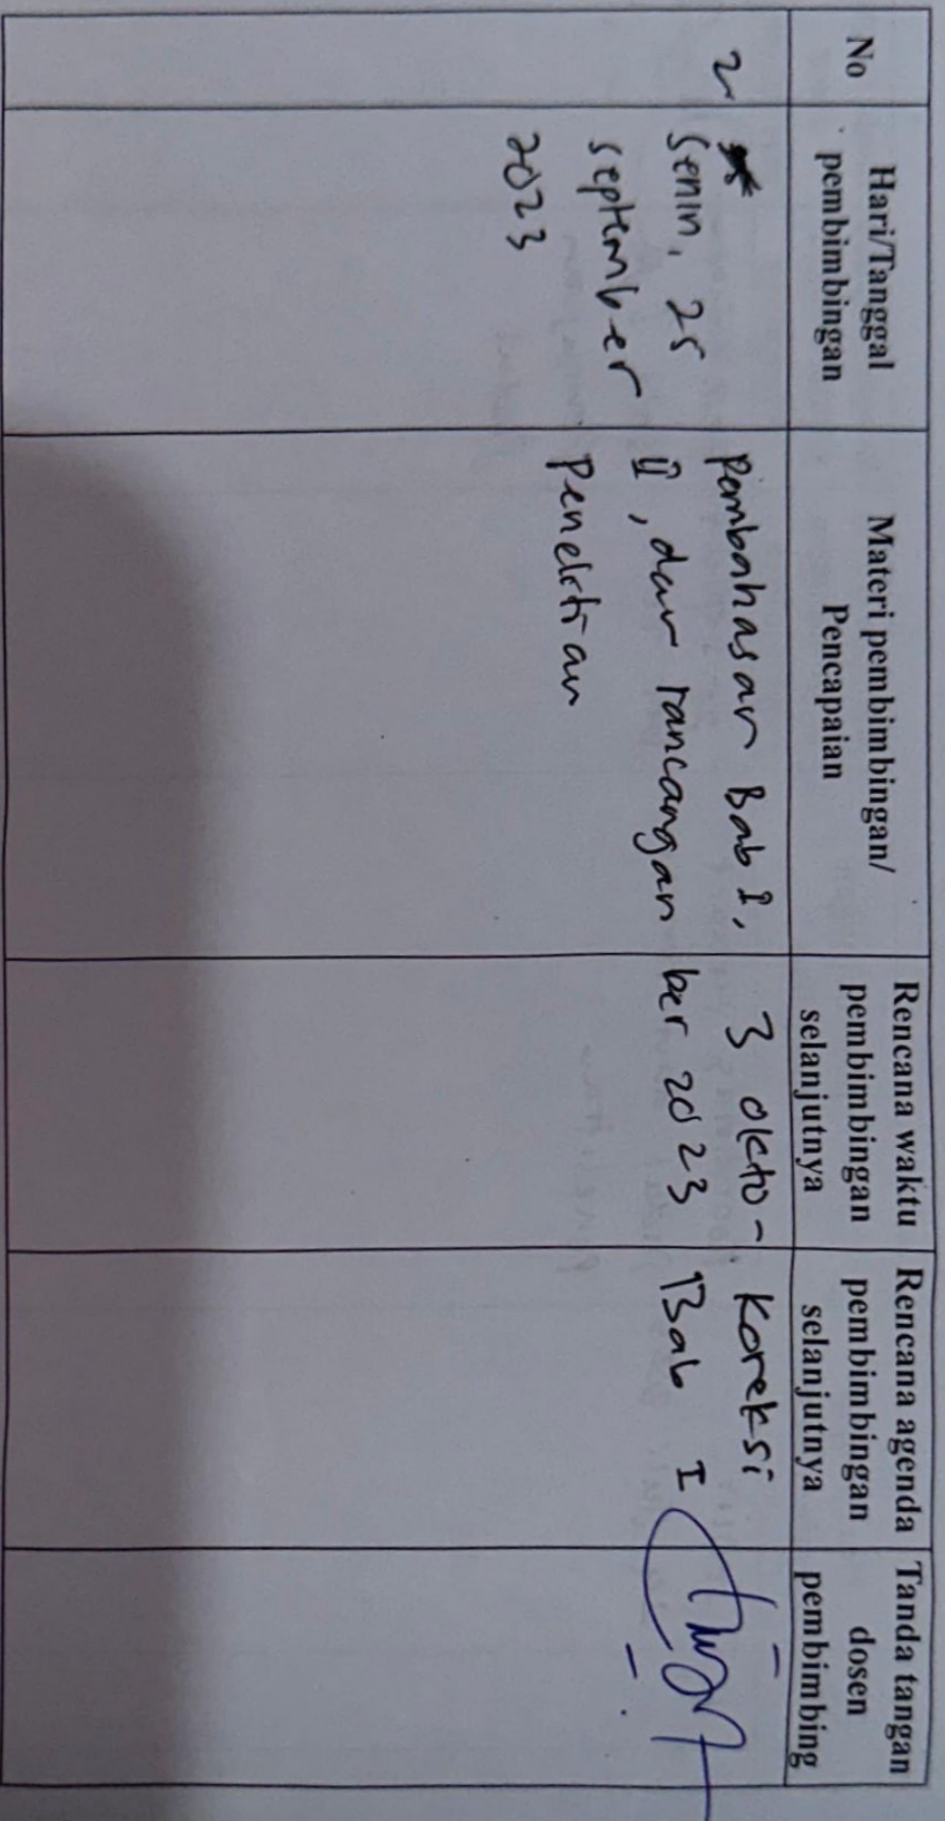 No
Hari/Tanggal
pembimbingan
Materi pembimbingan/
Pencapaian
Rencana waktu
pembimbingan
selanjutnya
Rencana agenda
pembimbingan
selanjutnya
Tanda tangan
dosen
pembimbing
2.
Senin, 25
September
2023
Pembahasan Bab I,
II, dan rancangan
Penelitian
3 Okto-
ber 2023
Koreksi
Bab I